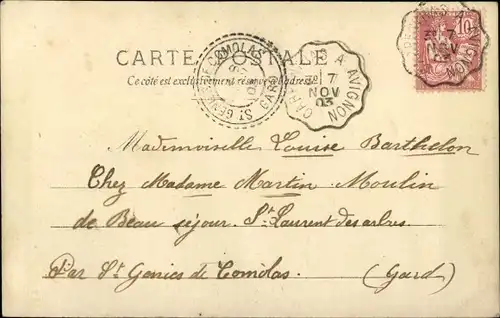 CARTE POSTALE
Ce côté est exclusivement réservé à l'adresse
ST GENIES DE COMOLAS
GARD
A AVIGNON
7
NOV
03
10
7
NOV
AVIGNON
Mademoiselle Louise Barthelon
Chez Madame Martin Moulin
de Beau séjour. St Laurent des arbres.
Par St Genies de Comolas. (Gard)